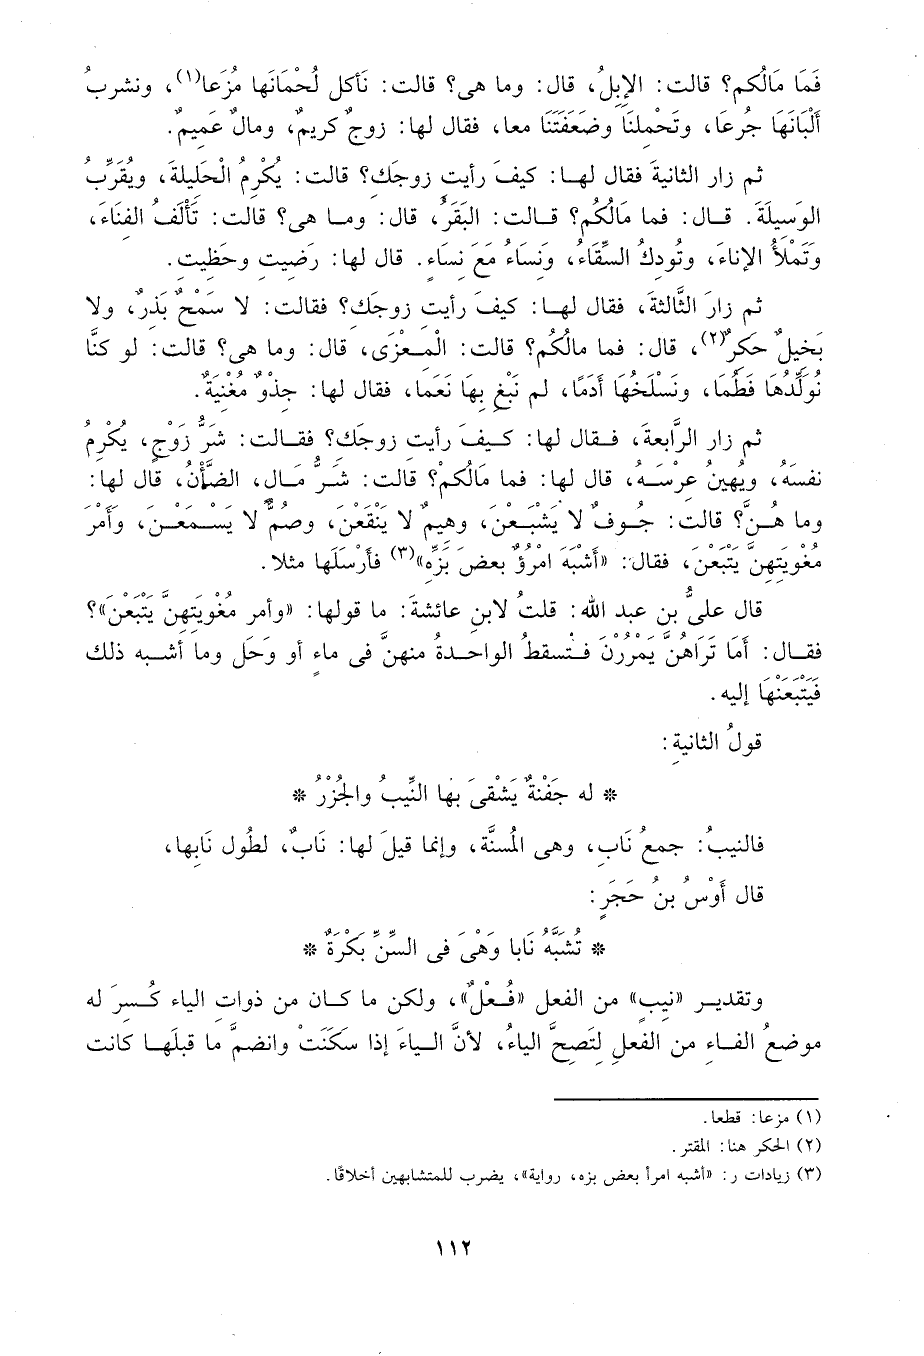 فَمَا مَالُكم؟ قالت: الإبلُ، قال: وما هى؟ قالت: نَأكل لُحمْانَها مُزَعا(١)، ونشربُ
أَلْبَانَهَا جُرعَا، وتَحْملنَا وضَعَفَتَنَا معا، فقال لها: زوجٌ كريمٌ، ومالٌ عَميمٌ.
ثم زار الثانيةَ فقال لهـا: كيفَ رأيتِ زوجَك؟ قالت: يُكْرمُ الْحَليلةَ، ويُقرِّبُ
الوَسِيلَةَ. قـال: فما مَالُكُم؟ قـالت: البَقَرُ، قال: ومـا هى؟ قالت: تَأْلَفُ الفنَاءَ،
وَتَمْلأُ الإناءَ، وتُودِكُ السِّقَاءُ، ونَساءٌ مَعَ نسَاءٍ. قال لها: رَضِيتِ وحَظِيتِ.
ثم زارَ الثَّالثةَ، فقال لهـا: كيفَ رأيتِ زوجَك؟ فقالت: لا سَمْحٌ بَذِرٌ، ولا
بَخيلٌ حَكِرٌ(٢)، قال: فما مالُكُم؟ قالت: الْمـعْزَى، قال: وما هى؟ قالت: لو كنَّا
نُولِّدُهَا فَطُمَا، ونَسْلَخُهَا أَدَمًا، لم نَبْغِ بِهَا نَعَما، فقال لها: جِذْوٌ مُغْنِيَةٌ.
ثم زار الرَّابعةَ، فـقال لها: كـيفَ رأيتِ زوجَك؟ فقـالت: شَرُّ زَوْجٍ، يُكْرِمُ
نفسَهُ، ويُهينُ عِرْسَـهُ، قال لها: فما مَالُكمْ؟ قالت: شَـرُّ مَـالٍ، الضَّأْنُ، قال لها:
وما هُـنَّ؟ قالت: جُـوفٌ لا يَشْبَـعْنَ، وهِيمٌ لا يَنْقَعْنَ، وصُمٌّ لا يَسْـمعْـنَ، وأَمْرَ
مغْوِيتهِنَّ يَتْبَعْنَ، فقال: «أَشْبَهَ امْرُؤٌ بعضَ بَزِّه»(٣) فأَرْسَلَها مثلا.
قال علىُّ بن عبد الله: قلتُ لابنِ عائشةَ: ما قولها: «وأمر مُغْويَتهِنَّ يَتْبعْنَ»؟
فقـال: أمَا تَرَاهُنَّ يَمْرُرْنَ فـتْسقطُ الواحـدةُ منهنَّ فى ماءٍ أو وَحَل وما أشـبه ذلك
فَيَتْبَعْنَهَا إليه.
قولُ الثانيةِ:
* له جَفْنةٌ يَشْقى بهَا النِّيبُ والجُزْرُ *
فالنيبُ: جمعُ نَابٍ، وهى المُسنَّة، وإنما قيلَ لها: نَابٌ، لطُول نَابها،
قال أَوْسُ بنُ حَجَرٍ:
* تُشَبَّهُ نَابا وَهْىَ فى السِّنِّ بَكْرَةٌ *
وتقديـر «نيبٍ» من الفعل «فُـعْلٌ»، ولكن ما كـان من ذواتِ الياء كُـسِرَ له
موضعُ الفـاء من الفعلِ لتَصِحَّ الياءُ، لأنَّ الـياءَ إذا سكَنَتْ وانضمَّ ما قبلَهـا كانت
(١) مزعا: قطعا.
(٢) الحكر هنا: المقتر.
(٣) زيادات ر: «أشبه امرأ بعض بزه، رواية»، يضرب للمتشابهين أخلاقًا.
١١٢